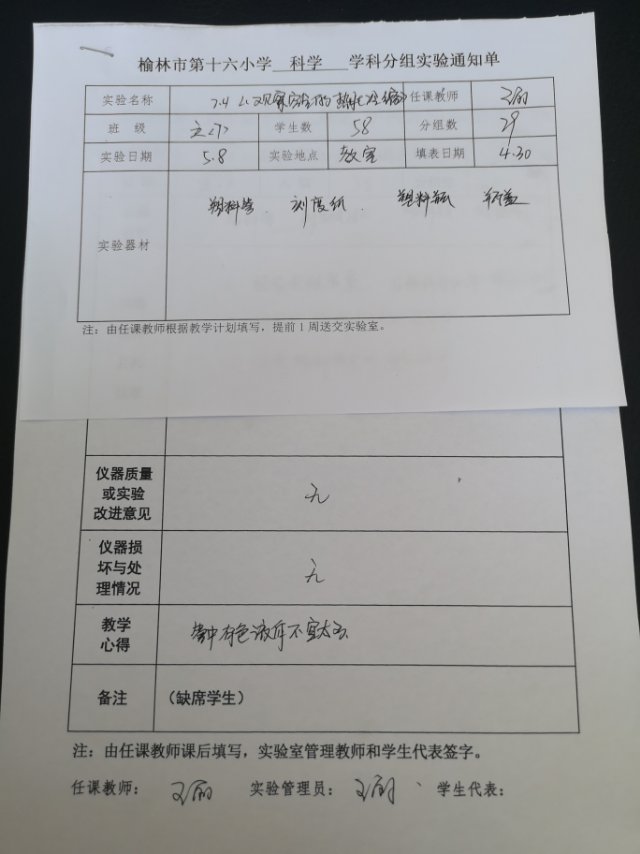 榆林市第十六小学 科学 学科分组实验通知单
实验名称 7.4 任课教师 王丽
班 级 学生数 58 分组数 29
实验日期 5.8 实验地点 教室 填表日期 4.30
实验器材 塑料管 刻度纸 塑料瓶
注：由任课教师根据教学计划填写，提前1周送交实验室。
仪器质量
或实验
改进意见 无
仪器损
坏与处
理情况 无
教学
心得 管中有色液体不宜太多
备注 （缺席学生）
注：由任课教师课后填写，实验室管理教师和学生代表签字。
任课教师： 王丽 实验管理员： 学生代表：